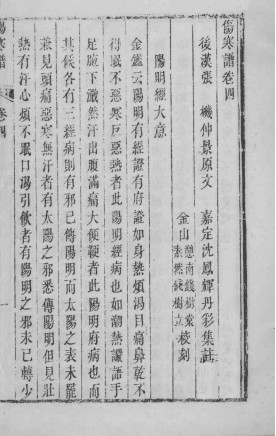 傷寒譜卷四
後漢張　機仲景原文　嘉定沈鳳輝丹彩集註
金山
憩南錢樹棠
錢樹立
校刻
陽明經大意
金鑑云陽明有經證有府證如身熱煩渴目痛鼻乾不
得眠不惡寒反惡熱者此陽明經病也如潮熱讝語手
足腋下濈然汗出腹滿痛大便鞕者此陽明府病也而
其候各有三經病則有邪已傳陽明而太陽之表未罷
兼見頭痛惡寒無汗者有太陽之邪悉傳陽明但見壯
熱有汗心煩不眠口渴引飲者有陽明之邪未已轉少
傷寒譜
卷四